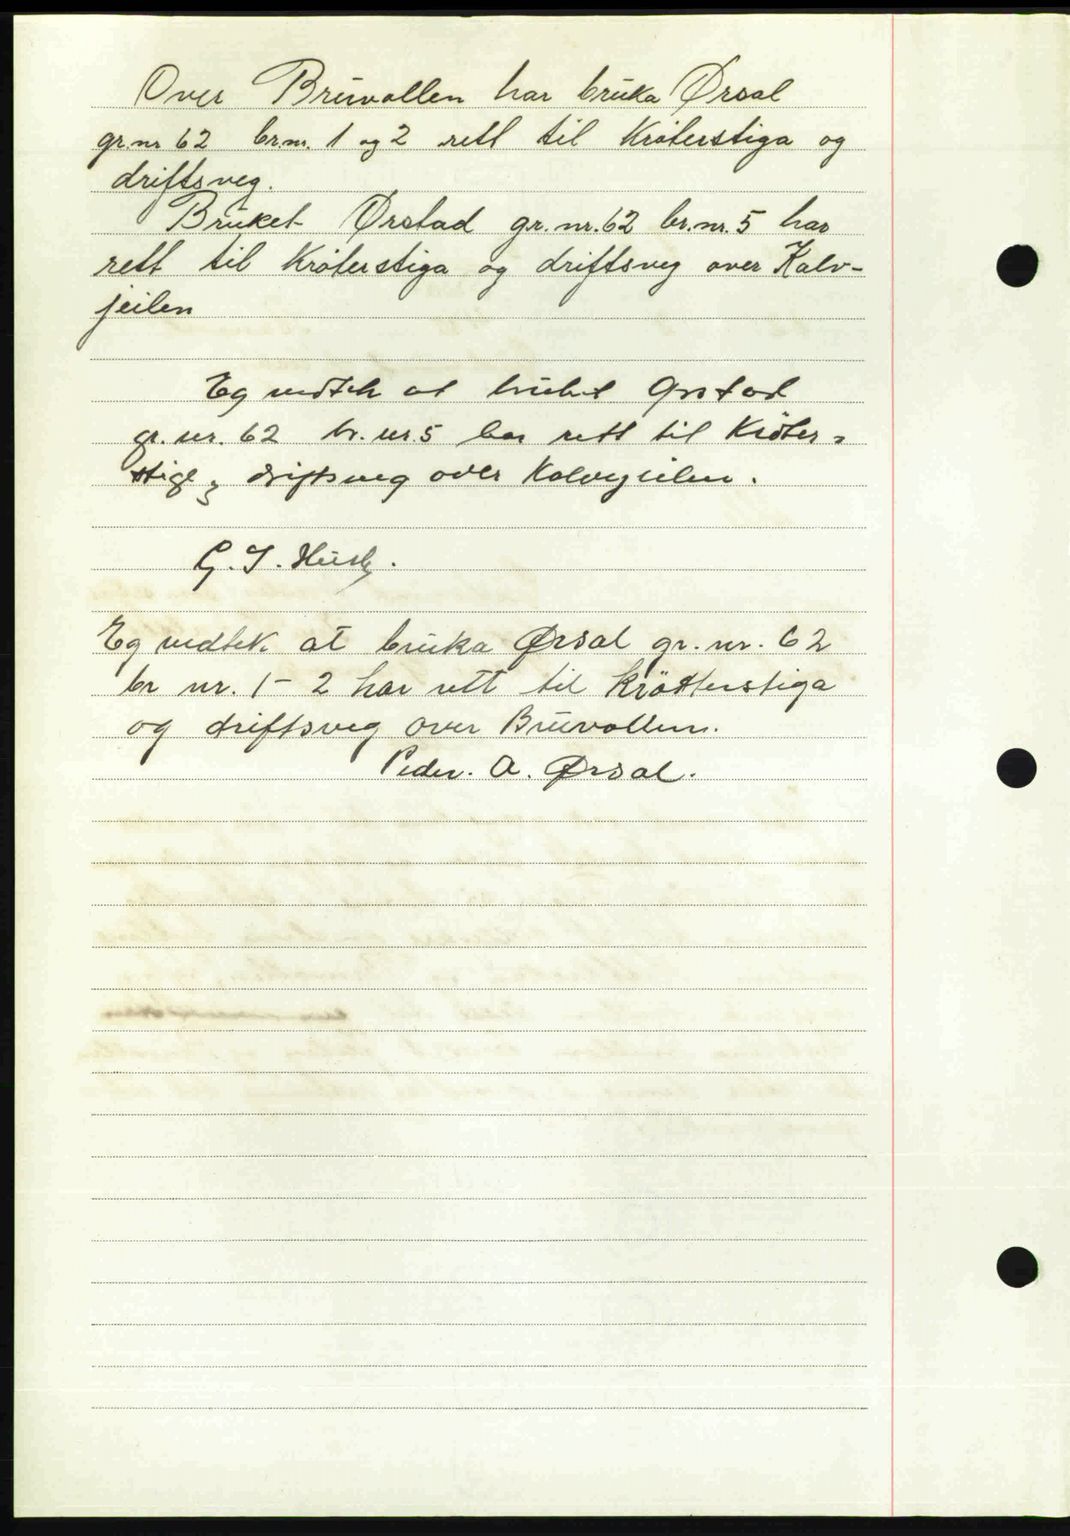 Over Bruvollen har bruka Ørsal
gr. nr 62 br. nr. 1 og 2 rett til Krøterstiga og
driftsveg.
Bruket Ørstad gr. nr. 62 br. nr. 5 har
rett til Krøterstiga og driftsveg over Kalv-
jeilen
Eg vedtek at bruket Ørstad
gr. nr. 62 br. nr. 5 har rett til Krøter=
stige og driftsveg over Kalvejeilen.
G. I. Husby.
Eg vedtek at bruka Ørsal gr. nr. 62
br nr. 1 - 2 har rett til krøtterstiga
og driftsveg over Bruvollen.
Peder. A. Ørsal.